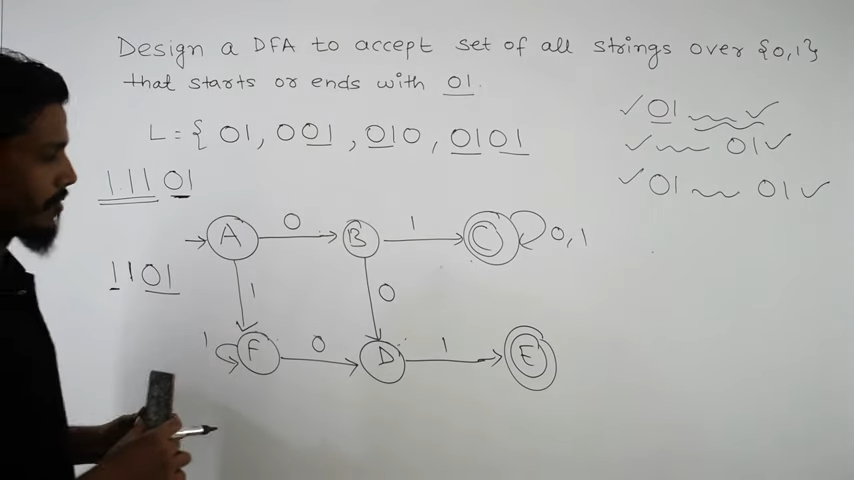 Design a DFA to accept set of all strings over {0,1}
that starts or ends with 01.
L = { 01, 001, 010, 0101
01
01
01 01
111101
1101
A 0 B 1 C 0,1
1 0
1 F 0 D 1 E